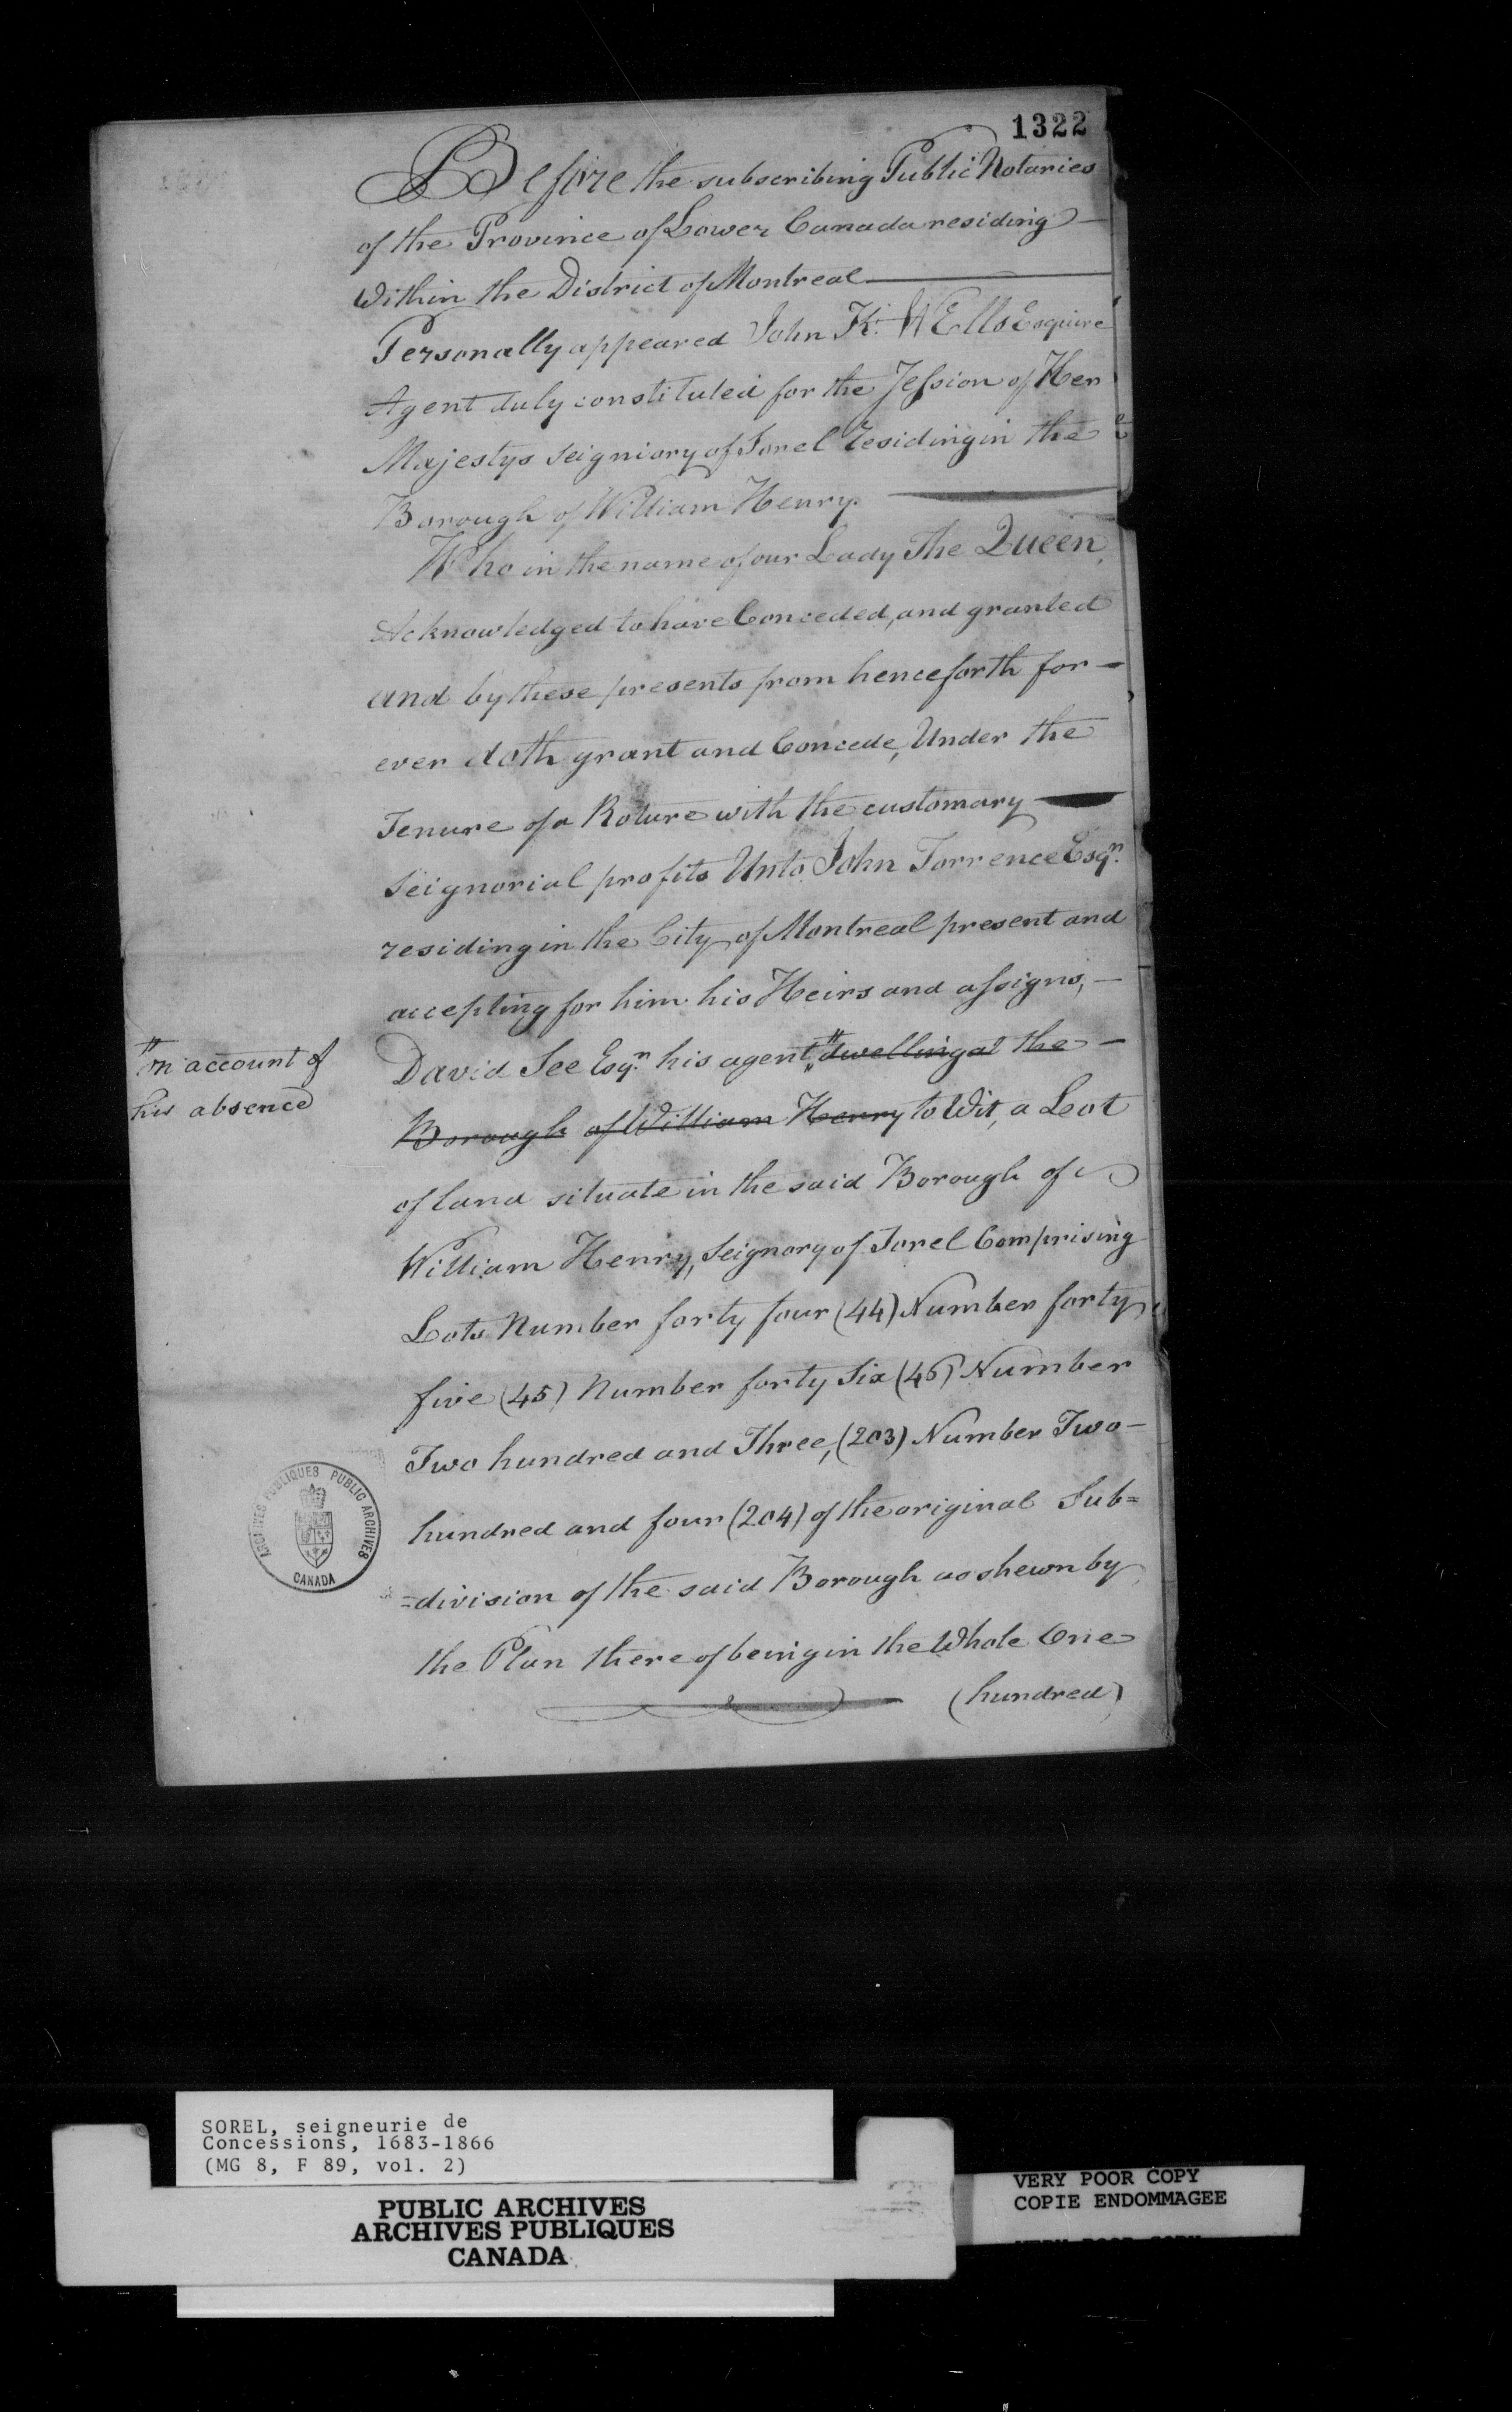 1322
Before the subscribing Public Notaries
of the Province of Lower Canada residing
Within the District of Montreal
Personally appeared John K. WElls Esquire
Agent duly constituted for the Jession of Her
Majestys seigniory of Sorel Residing in the
Borough of William Henry.
Who in the name of our Lady The Queen,
Acknowledged to have Conceded, and granted
and by these presents from henceforth for-
ever doth grant and Concede, Under the
Tenure of a Roture with the customary
Seignorial profits Unto John Torrence Esqr.
residing in the City of Montreal present and
accepting for him his Heirs and assigns, -
David See Esqr. his agent, "dwelling at the -
"on account of
his absence
Borough of William Henry to Wit, a Lot
of land situate in the said Borough of
William Henry, Seignory of Sorel Comprising
Lots Number forty four (44) Number forty
five (45) Number forty Six (46) Number
Two hundred and Three, (203) Number Two-
hundred and four (204) of the original Sub=
=division of the said Borough as shewn by
the Plan there of being in the Whole One
(hundred)
ARCHIVES PUBLIQUES PUBLIC ARCHIVES
CANADA
SOREL, seigneurie de
Concessions, 1683-1866
(MG 8, F 89, vol. 2)
PUBLIC ARCHIVES
ARCHIVES PUBLIQUES
CANADA
VERY POOR COPY
COPIE ENDOMMAGEE
VERY POOR COPY